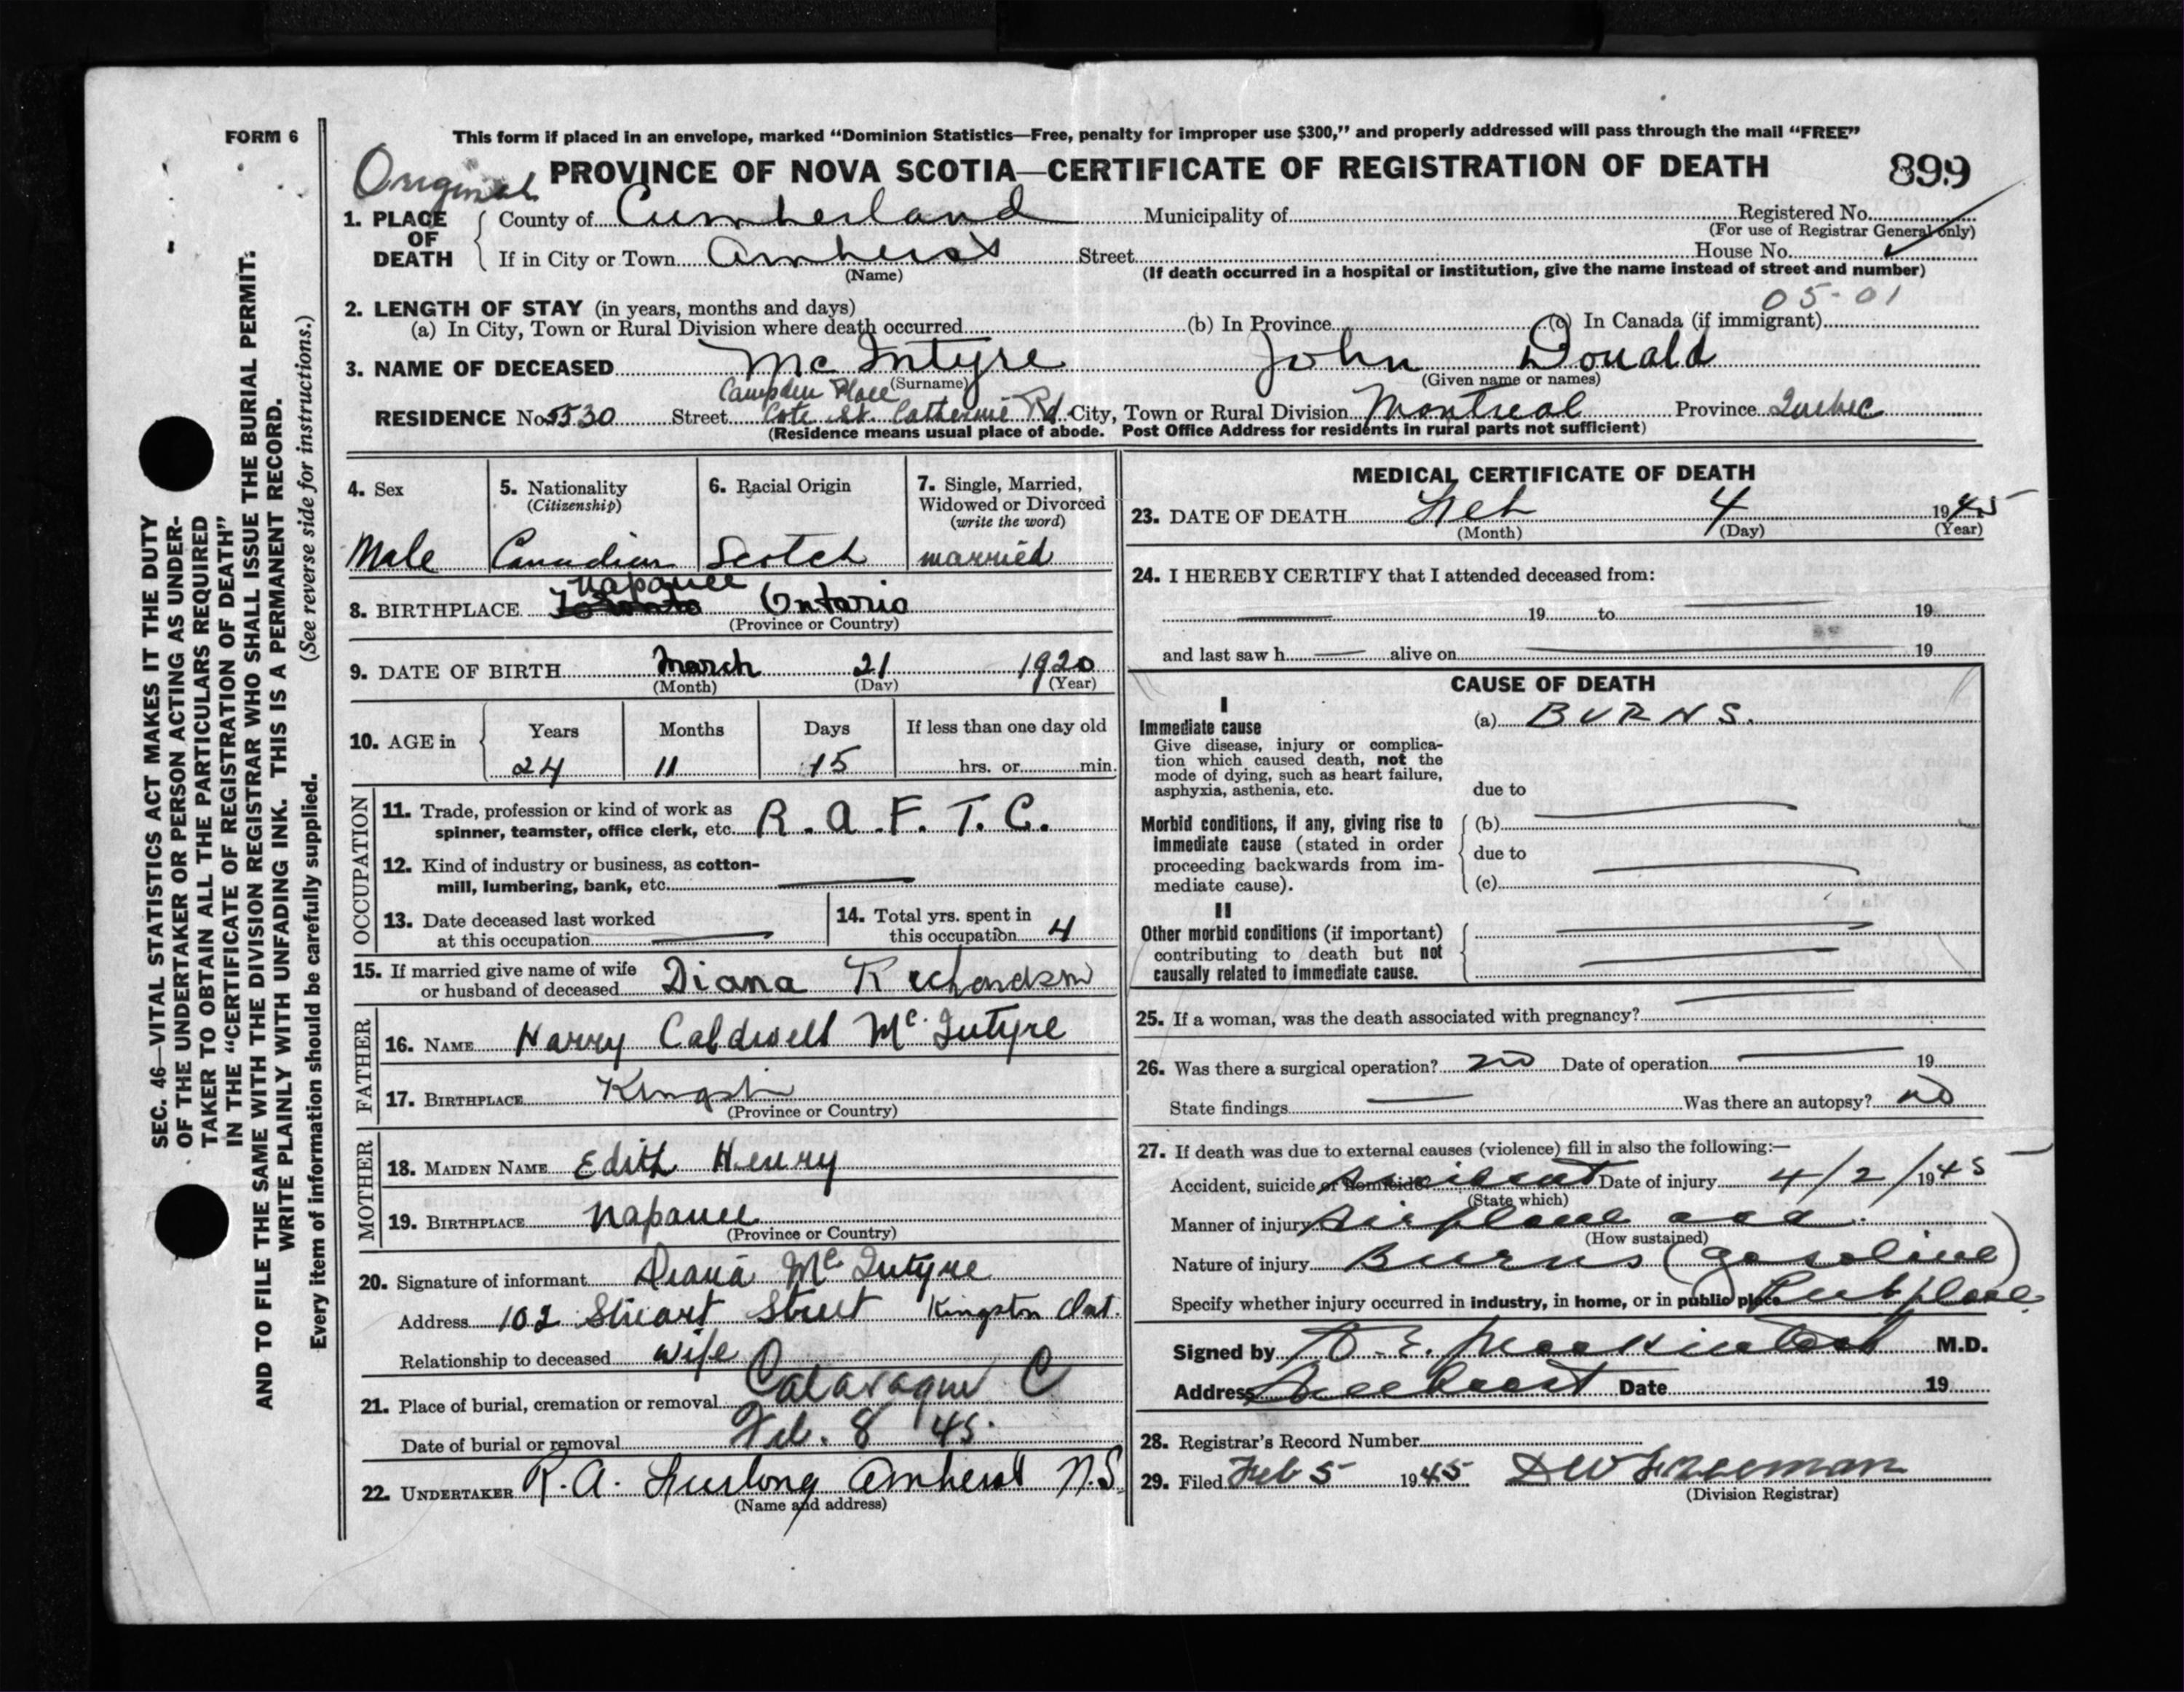 FORM 6
This form if placed in an envelope, marked “Dominion Statistics—Free, penalty for improper use $300,” and properly addressed will pass through the mail “FREE”
Original PROVINCE OF NOVA SCOTIA—CERTIFICATE OF REGISTRATION OF DEATH 899
1. PLACE OF DEATH County of Cumberland Municipality of Registered No.
(For use of Registrar General only)
If in City or Town Amherst Street House No.
(Name) (If death occurred in a hospital or institution, give the name instead of street and number)
05-01
2. LENGTH OF STAY (in years, months and days)
(a) In City, Town or Rural Division where death occurred (b) In Province (c) In Canada (if immigrant)
3. NAME OF DECEASED McIntyre John Donald
(Surname) (Given name or names)
Campden Place
RESIDENCE No. 5530 Street Cote St. Catherine Rd. City, Town or Rural Division Montreal Province Quebec
(Residence means usual place of abode. Post Office Address for residents in rural parts not sufficient)
4. Sex
Male
5. Nationality
(Citizenship)
Canadian
6. Racial Origin
Scotch
7. Single, Married,
Widowed or Divorced
(write the word)
married
Napanee
8. BIRTHPLACE Toronto Ontario
(Province or Country)
9. DATE OF BIRTH March 21 1920
(Month) (Day) (Year)
10. AGE in Years Months Days If less than one day old
24 11 15 hrs. or min.
OCCUPATION
11. Trade, profession or kind of work as
spinner, teamster, office clerk, etc. R.A.F.T.C.
12. Kind of industry or business, as cotton-
mill, lumbering, bank, etc.
13. Date deceased last worked
at this occupation
14. Total yrs. spent in
this occupation 4
15. If married give name of wife
or husband of deceased Diana Richardson
FATHER
16. NAME Harry Caldwell McIntyre
17. BIRTHPLACE Kingston
(Province or Country)
MOTHER
18. MAIDEN NAME Edith Henry
19. BIRTHPLACE Napanee
(Province or Country)
20. Signature of informant Diana McIntyre
Address 102 Stuart Street Kingston Ont.
Relationship to deceased wife
21. Place of burial, cremation or removal Cataraqui C
Date of burial or removal Feb. 8 45.
22. UNDERTAKER R.A. Furlong Amherst N.S.
(Name and address)
MEDICAL CERTIFICATE OF DEATH
23. DATE OF DEATH Feb 4 1945
(Month) (Day) (Year)
24. I HEREBY CERTIFY that I attended deceased from:
19 to 19
and last saw h alive on 19
CAUSE OF DEATH
I
Immediate cause (a) BURNS.
Give disease, injury or complica-
tion which caused death, not the
mode of dying, such as heart failure,
asphyxia, asthenia, etc. due to
Morbid conditions, if any, giving rise to (b)
immediate cause (stated in order
proceeding backwards from im- due to
mediate cause). (c)
II
Other morbid conditions (if important)
contributing to death but not
causally related to immediate cause.
25. If a woman, was the death associated with pregnancy?
26. Was there a surgical operation? no Date of operation 19
State findings Was there an autopsy? no
27. If death was due to external causes (violence) fill in also the following:—
Accident, suicide or homicide Accident Date of injury 4/2/1945
(State which)
Manner of injury Airplane acc.
(How sustained)
Nature of injury Burns (gasoline)
Specify whether injury occurred in industry, in home, or in public place Pub place
Signed by M.D.
Address Amherst Date 19
28. Registrar's Record Number
29. Filed Feb 5 1945 DW Freeman
(Division Registrar)
SEC. 46—VITAL STATISTICS ACT MAKES IT THE DUTY
OF THE UNDERTAKER OR PERSON ACTING AS UNDER-
TAKER TO OBTAIN ALL THE PARTICULARS REQUIRED
IN THE “CERTIFICATE OF REGISTRATION OF DEATH”
AND TO FILE THE SAME WITH THE DIVISION REGISTRAR WHO SHALL ISSUE THE BURIAL PERMIT.
WRITE PLAINLY WITH UNFADING INK. THIS IS A PERMANENT RECORD.
Every item of information should be carefully supplied. (See reverse side for instructions.)